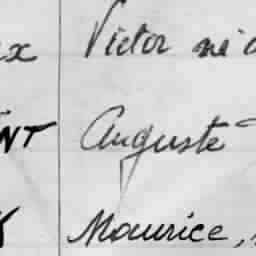 ex Victor né
NT Auguste
Maurice,